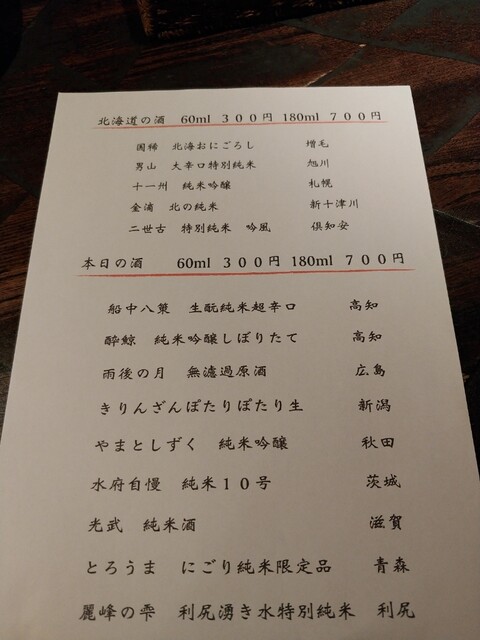 北海道の酒 60ml ３００円 180ml ７００円
国稀 北海おにごろし 増毛
男山 大辛口特別純米 旭川
十一州 純米吟醸 札幌
金滴 北の純米 新十津川
二世古 特別純米 吟風 倶知安
本日の酒 60ml ３００円 180ml ７００円
船中八策 生酛純米超辛口 高知
酔鯨 純米吟醸しぼりたて 高知
雨後の月 無濾過原酒 広島
きりんざんぽたりぽたり生 新潟
やまとしずく 純米吟醸 秋田
水府自慢 純米１０号 茨城
光武 純米酒 滋賀
とろうま にごり純米限定品 青森
麗峰の雫 利尻湧き水特別純米 利尻